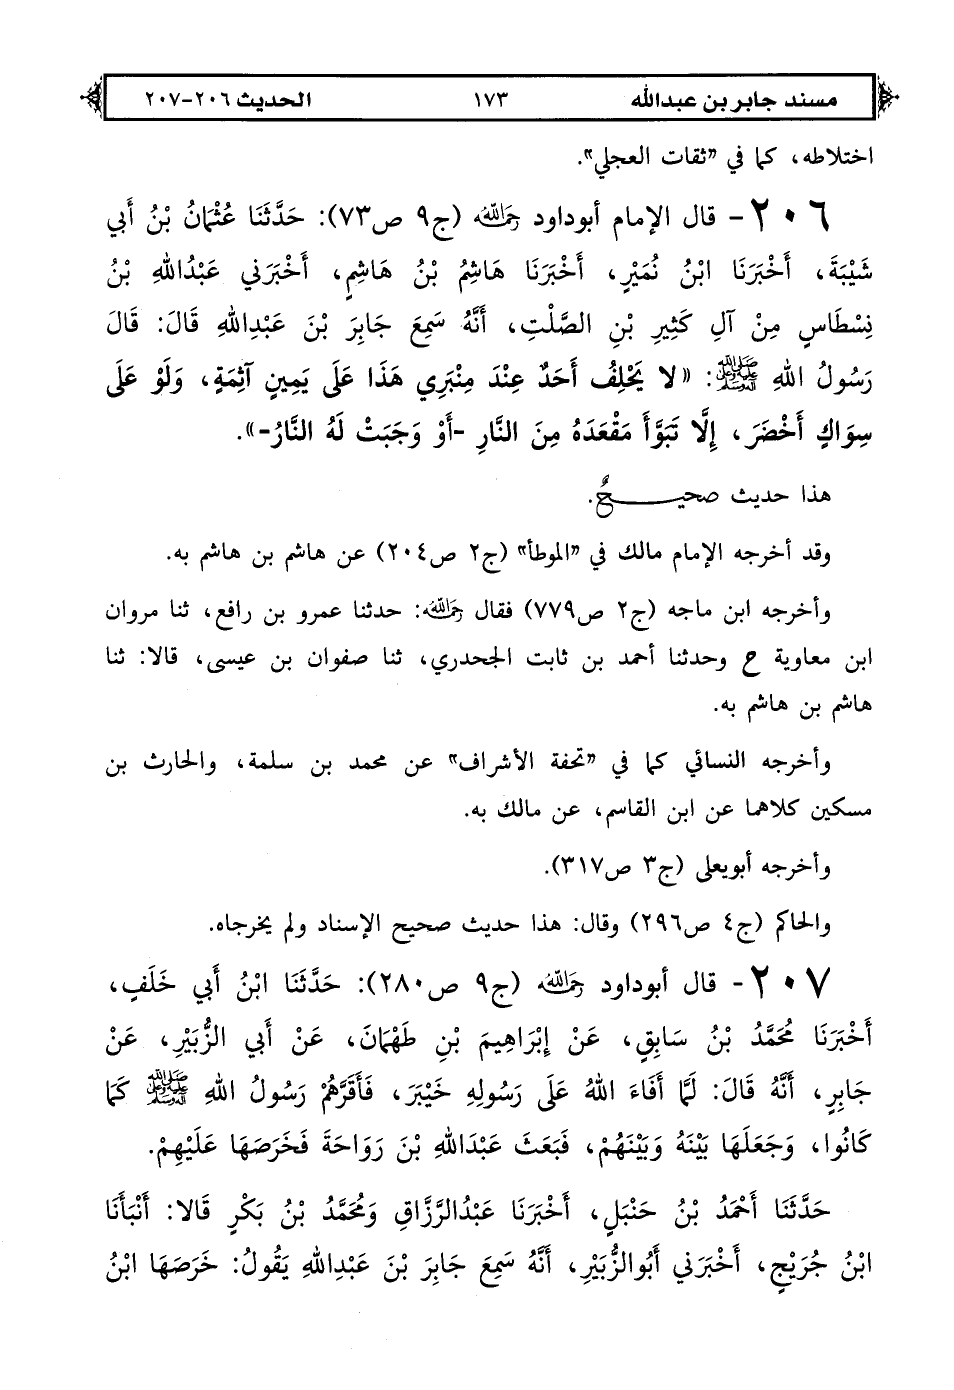 مسند جابر بن عبدالله ١٧٣ الحديث ٢٠٦-٢٠٧
اختلاطه، كما في "ثقات العجلي".
٢٠٦ - قال الإمام أبوداود رحمه الله (ج٩ ص٧٣): حَدَّثَنَا عُثْمَانُ بْنُ أَبِي
شَيْبَةَ، أَخْبَرَنَا ابْنُ نُمَيْرٍ، أَخْبَرَنَا هَاشِمُ بْنُ هَاشِمٍ، أَخْبَرَنِي عَبْدُاللهِ بْنُ
نِسْطَاسٍ مِنْ آلِ كَثِيرِ بْنِ الصَّلْتِ، أَنَّهُ سَمِعَ جَابِرَ بْنَ عَبْدِاللهِ قَالَ: قَالَ
رَسُولُ اللهِ ﷺ: «لا يَحْلِفُ أَحَدٌ عِنْدَ مِنْبَرِي هَذَا عَلَى يَمِينٍ آثِمَةٍ، وَلَوْ عَلَى
سِوَاكٍ أَخْضَرَ، إِلَّا تَبَوَّأَ مَقْعَدَهُ مِنَ النَّارِ -أَوْ وَجَبَتْ لَهُ النَّارُ-».
هذا حديث صحيـــــحٌ.
وقد أخرجه الإمام مالك في "الموطأ" (ج٢ ص٢٠٤) عن هاشم بن هاشم به.
وأخرجه ابن ماجه (ج٢ ص٧٧٩) فقال رحمه الله: حدثنا عمرو بن رافع، ثنا مروان
ابن معاوية ح وحدثنا أحمد بن ثابت الجحدري، ثنا صفوان بن عيسى، قالا: ثنا
هاشم بن هاشم به.
وأخرجه النسائي كما في "تحفة الأشراف" عن محمد بن سلمة، والحارث بن
مسكين كلاهما عن ابن القاسم، عن مالك به.
وأخرجه أبويعلى (ج٣ ص٣١٧).
والحاكم (ج٤ ص٢٩٦) وقال: هذا حديث صحيح الإسناد ولم يخرجاه.
٢٠٧ - قال أبوداود رحمه الله (ج٩ ص٢٨٠): حَدَّثَنَا ابْنُ أَبِي خَلَفٍ،
أَخْبَرَنَا مُحَمَّدُ بْنُ سَابِقٍ، عَنْ إِبْرَاهِيمَ بْنِ طَهْمَانَ، عَنْ أَبِي الزُّبَيْرِ، عَنْ
جَابِرٍ، أَنَّهُ قَالَ: لَمَّا أَفَاءَ اللهُ عَلَى رَسُولِهِ خَيْبَرَ، فَأَقَرَّهُمْ رَسُولُ اللهِ ﷺ كَمَا
كَانُوا، وَجَعَلَهَا بَيْنَهُ وَبَيْنَهُمْ، فَبَعَثَ عَبْدَاللهِ بْنَ رَوَاحَةَ فَخَرَصَهَا عَلَيْهِمْ.
حَدَّثَنَا أَحْمَدُ بْنُ حَنْبَلٍ، أَخْبَرَنَا عَبْدُالرَّزَّاقِ وَمُحَمَّدُ بْنُ بَكْرٍ قَالا: أَنْبَأَنَا
ابْنُ جُرَيْجٍ، أَخْبَرَنِي أَبُوالزُّبَيْرِ، أَنَّهُ سَمِعَ جَابِرَ بْنَ عَبْدِاللهِ يَقُولُ: خَرَصَهَا ابْنُ